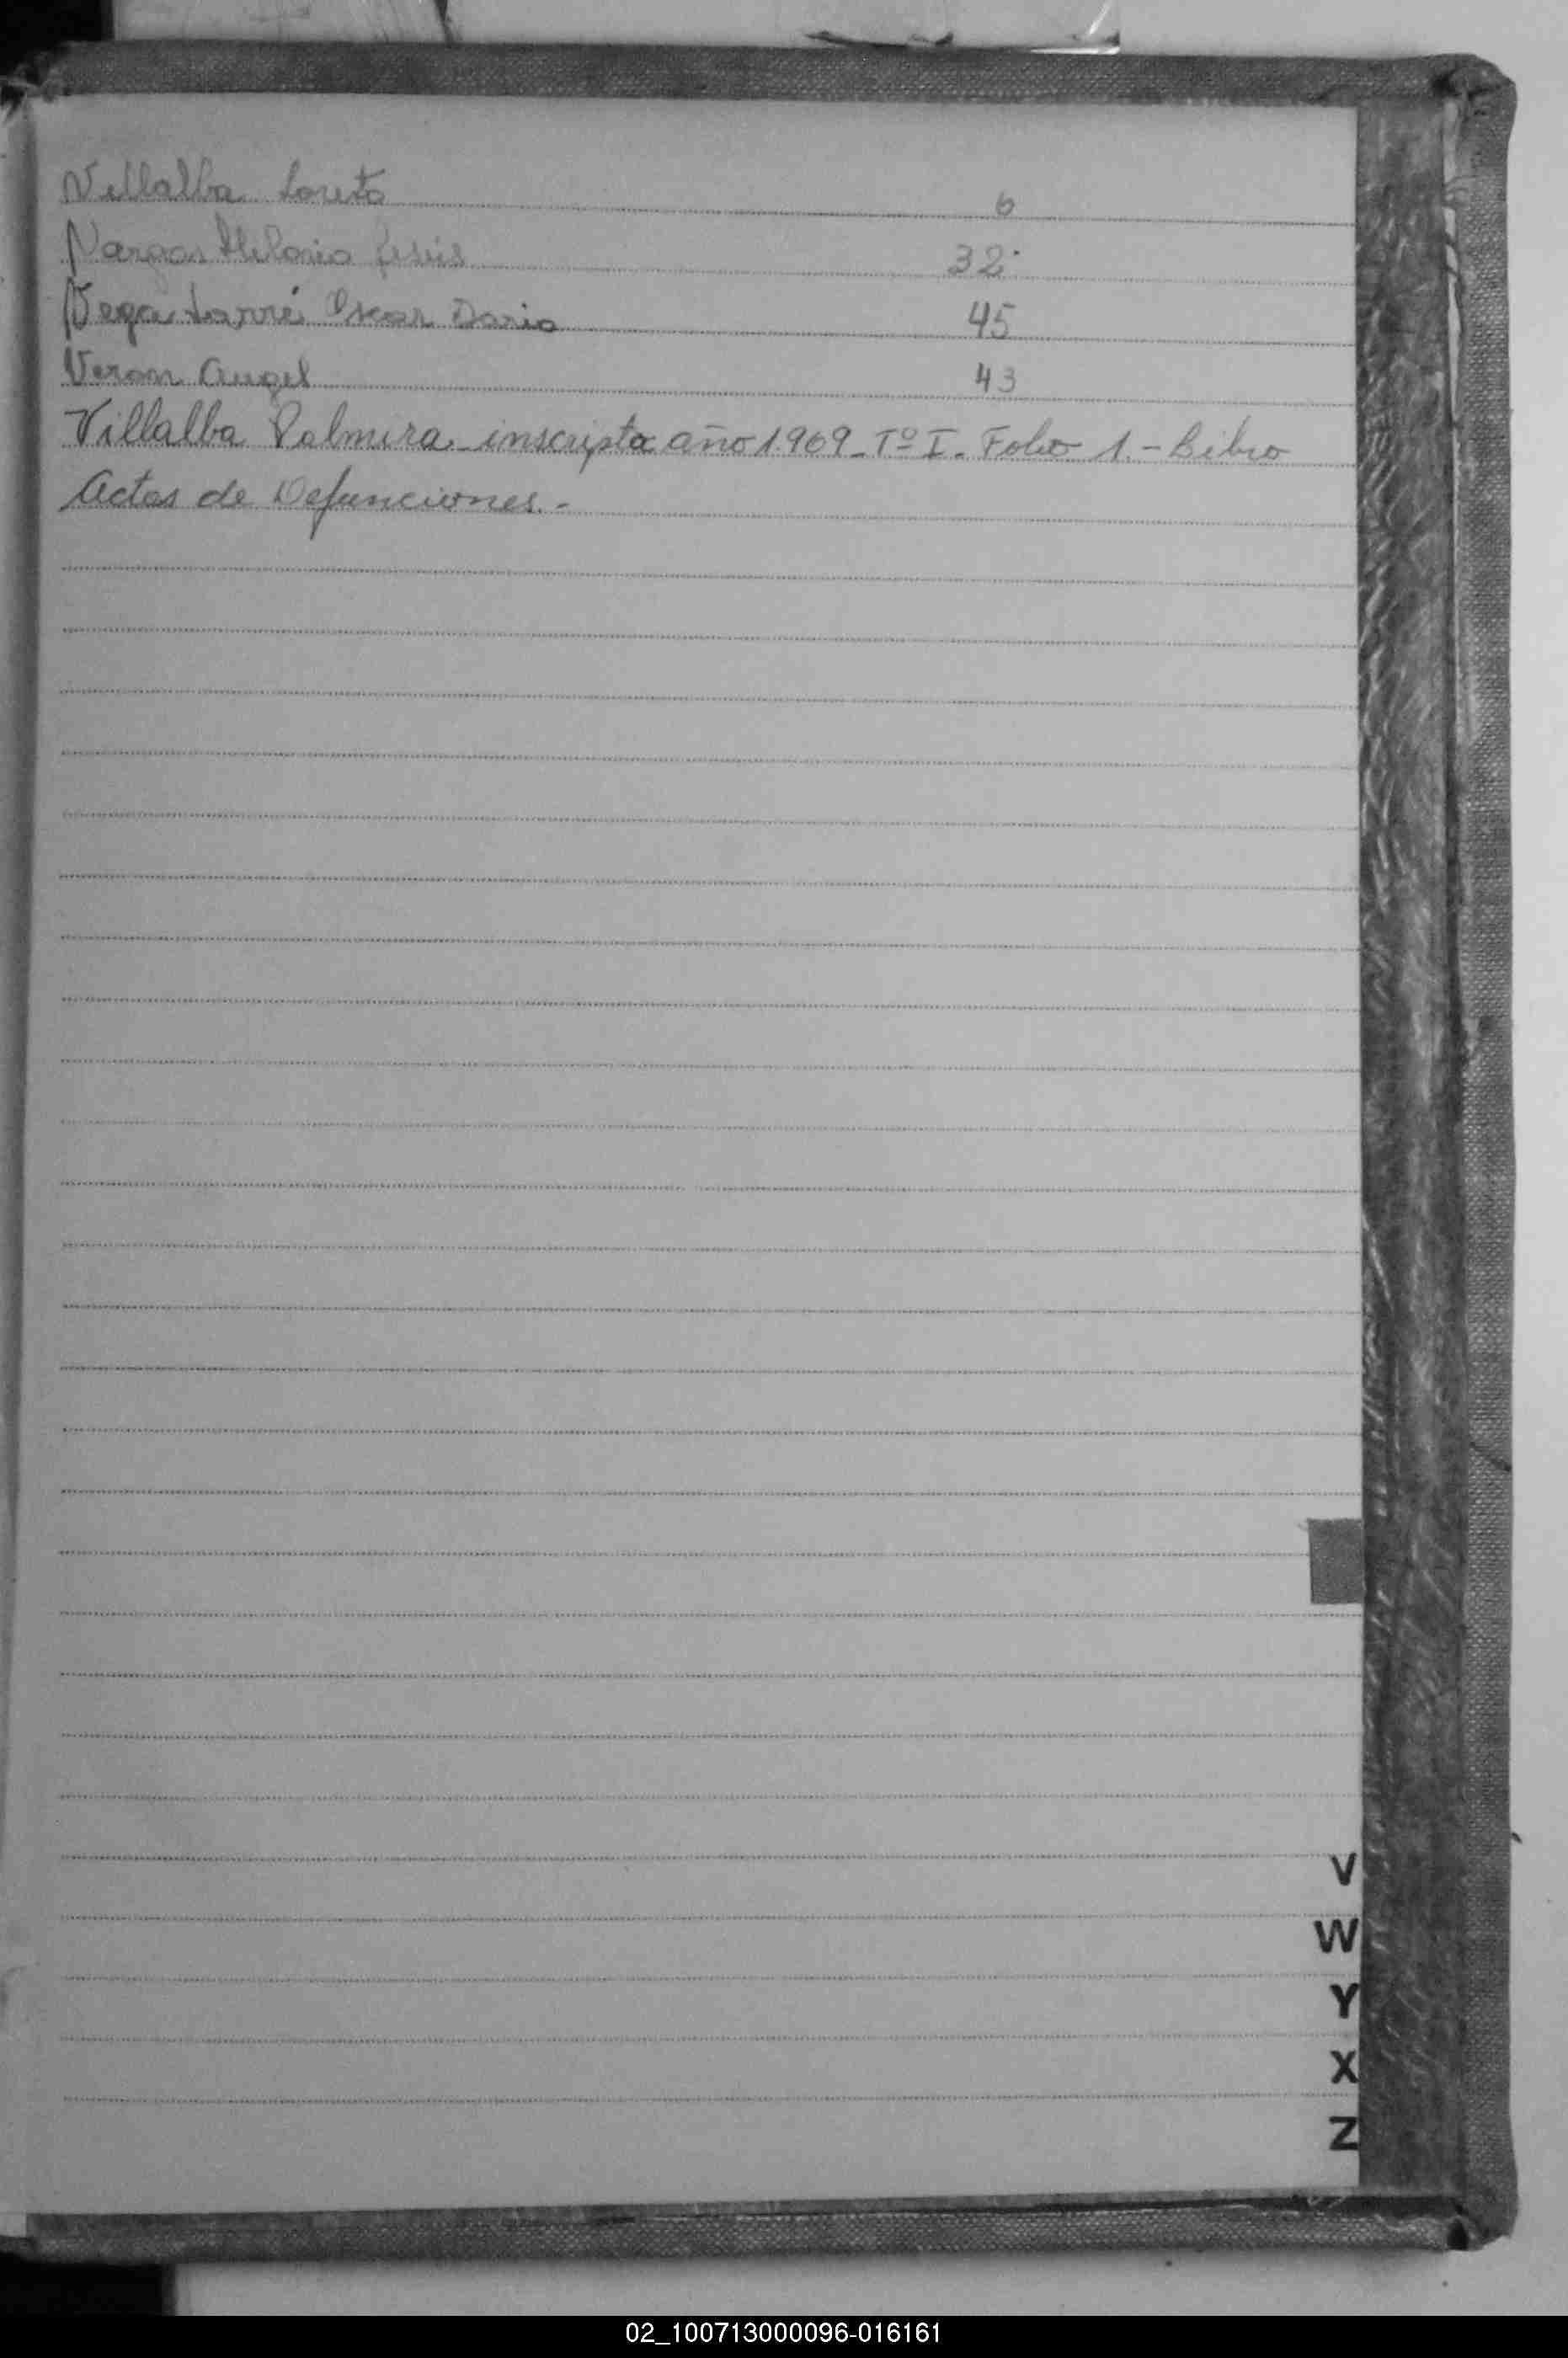 Villalba Loreto 6
Vargas Melanio Jesús 32
Vega Larré Oscar Dario 45
Veron Angel 43
Villalba Palmira inscripta año 1.969 - Tº I - Folio 1. - Libro
Actas de Defunciones. -
V
W
Y
X
Z
02_100713000096-016161